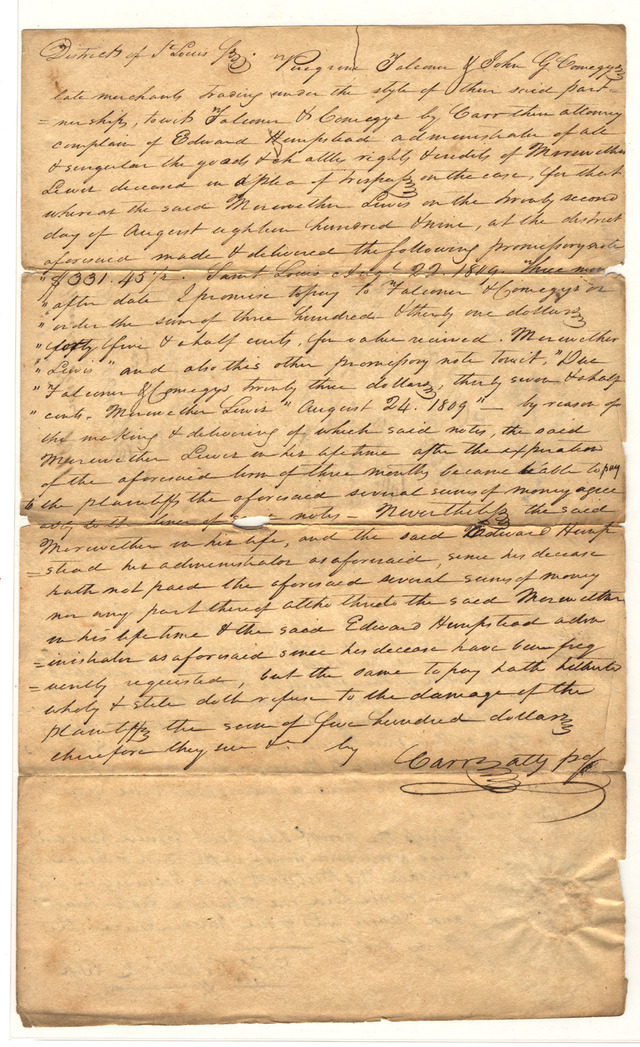 District of St Louis Ss. Peregrine Falconer & John G Comegys
late merchants trading under the style of their said part=
=nership, towit Falconer & Comegys by Carr their attorney
complain of Edward Hempstead administrator of all
& singular the goods & chattles rights & credits of Meriwether
Lewis deceased in a plea of trespass on the case, for that
whereas the said Meriwether Lewis on the twenty second
day of August eighteen hundred & nine, at the district
aforesaid made & delivered the following promissory note
"$331.45½. Saint Louis Augt 22. 1809. Three mon
"after date I promise to pay to Falconer & Comegys or
"order the sum of three hundred & thirty one dollars
"forty five & a half cents, for value received. Meriwether
"Lewis" and also this other promissory note towit, "Due
"Falconer & Comegys twenty three dollars, thirty seven & a half
"cents. Meriwether Lewis "August 24. 1809" — by reason of
the making & delivering of which said notes, the said
Meriwether Lewis in his lifetime after the expiration
of the aforesaid term of three months became liable to pay
to the plaintiffs the aforesaid several sums of money agree
ably to the tenor of notes — Nevertheless the said
Meriwether in his life, and the said Edward Hemp
=stead his administrator as aforesaid, since his decease
hath not paid the aforesaid several sums of money
nor any part thereof altho thereto the said Meriwether
in his lifetime & the said Edward Hempstead adm
=inistrator as aforesaid since his decease have been freq
=uently requested, but the same to pay hath hitherto
wholy & still doth refuse to the damage of the
plaintiffs the sum of five hundred dollars
therefore they sue &c. by Carr atty pr